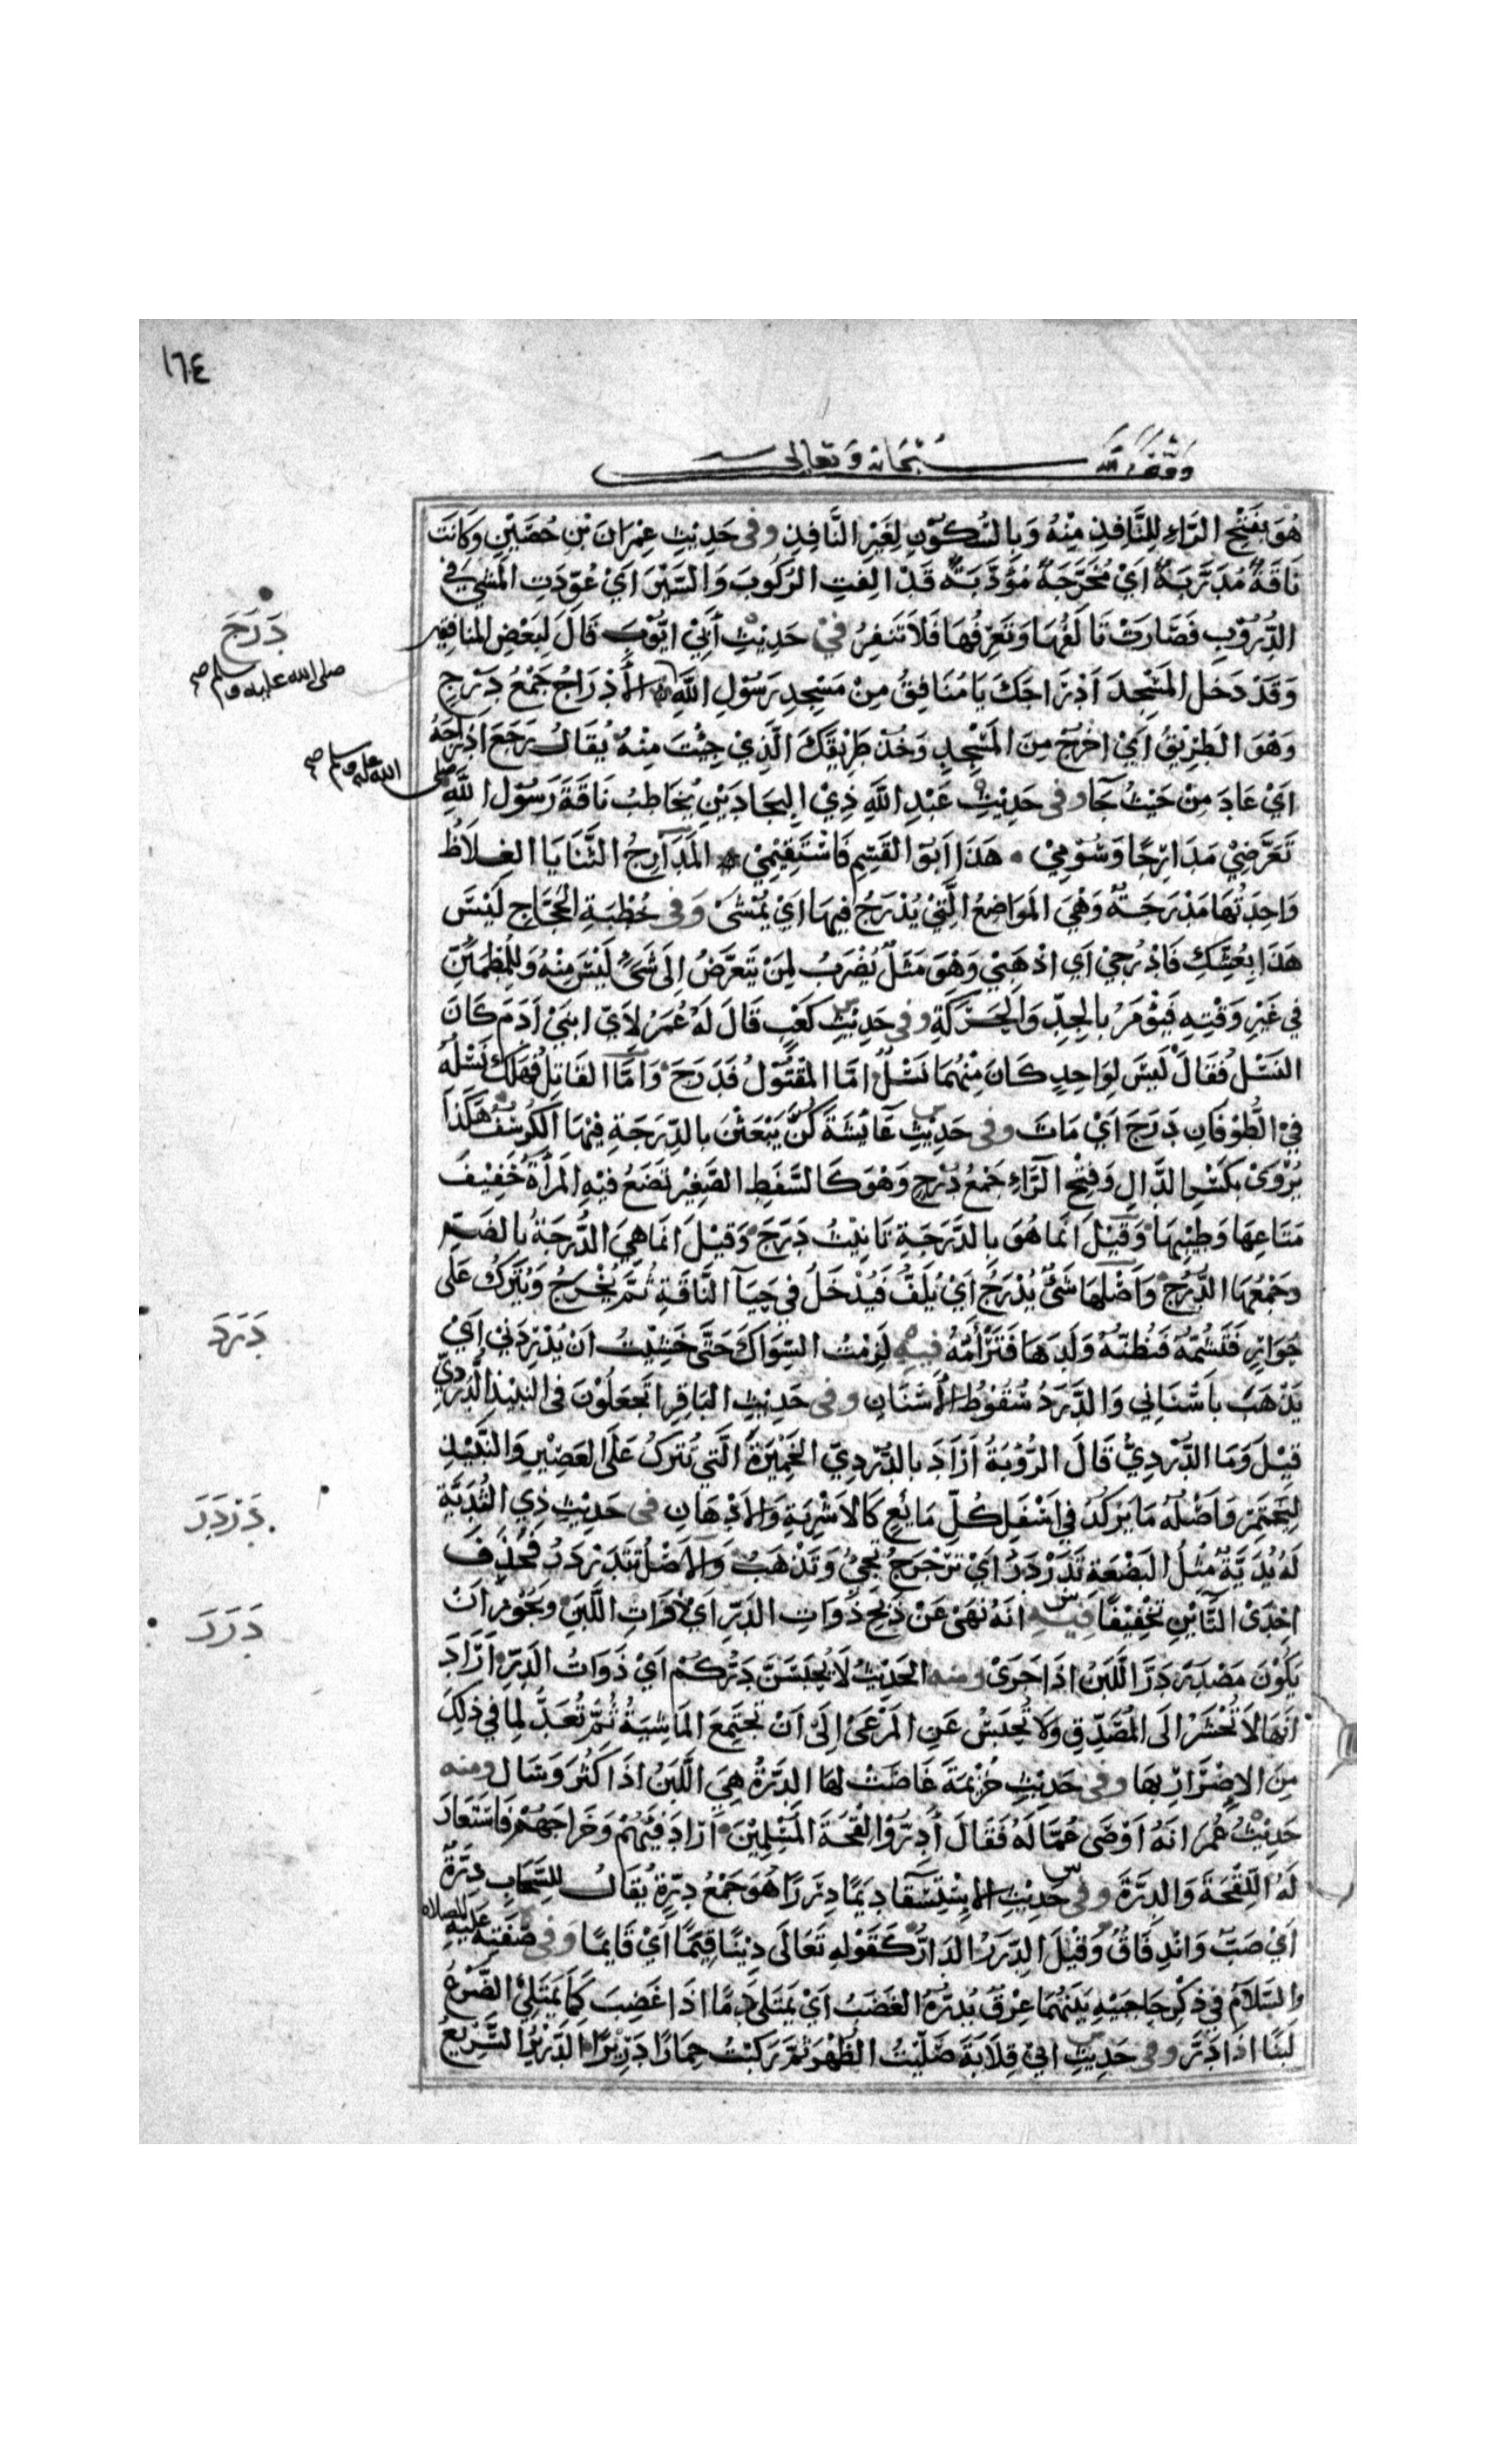 ١٦٤
وقف لله سبحانه وتعالى
هُوَ بِفَتْحِ الرَّاءِ لِلنَّافِذِ مِنْهُ وَبِالسُّكُوْنِ لِغَيْرِ النَّافِذِ وفى حَدِيْثِ عِمْرَانَ بْنِ حُصَيْنٍ وَكَانَتْ
نَاقَةً مُدَرَّبَةً اَيْ مُخَرَّجَةً مُؤَدَّبَةً قَدْ اَلِفَتِ الرُّكُوبَ وَالسَّيْرَ اَيْ عُوِّدَتِ المَشْيَ فِي
الدُّرُوْبِ فَصَارَتْ تَأْلَفُهَا وَتَعْرِفُهَا فَلَا تَنْفِرُ فِيْ حَدِيْثِ أَبِيْ ايُّوْبَ قَالَ لِبَعْضِ المنافقين
دَرَجَ
صلى الله عليه وسلم صح
وَقَدْ دَخَلَ المَسْجِدَ اَدْرَاجَكَ يَا مُنَافِقُ مِنْ مَسْجِدِ رَسُوْلِ اللَّهِ الأَدْرَاجُ جَمْعُ دَرْجٍ
وَهْوَ الطَرِيْقُ اَيْ اخْرُجْ مِنَ المَسْجِدِ وَخُذْ طَرِيْقَكَ الَّذِيْ جِئْتَ مِنْهُ يُقَالُ رَجَعَ ادْرَاجَهُ
صلى الله عليه وسلم صح
اَيْ عَادَ مِنْ حَيْثُ جَآ وفى حَدِيْثِ عَبْدِ اللَّهِ ذِيْ البِجَادَيْنِ يُخَاطِبُ نَاقَةَ رَسُوْل اللَّه
تَعَرَّضِيْ مَدَارِجًا وَسُوْمِيْ هَذَا اَبُو القَسِمِ فَاسْتَقِيْمِيْ المَدَارِجُ الثَّنَايَا الغِلَاظُ
وَاحِدَتُهَا مَدْرَجَةٌ وَهْيَ المَوَاضِعُ الَّتِيْ يُدْرَجُ فِيْهَا اَيْ يُمْشَى وَفِى خُطْبَةِ الحَجَّاجِ لَيْسَ
هَذَا بِعُشِّكِ فَادْرُجِيْ اَي اذْهَبِيْ وَهْوَ مَثَلٌ يُضْرَبُ لِمَنْ يَتَعَرَّضُ اِلَى شَىْءٍ لَيْسَ مِنْهُ وَلِلْمُطْمَئِنِّ
فِي غَيْرِ وَقْتِهِ فَيُؤْمَرُ بِالجِدِّ وَالحَرَكَةِ وفى حَدِيْثِ كَعْبٍ قَالَ لَهُ عُمَرُ لِاَيِّ ابْنَيْ اٰدَمَ كَانَ
النَسْلُ فَقَالَ لَيْسَ لِوَاحِدٍ كَانَ مِنْهُمَا نَسْلٌ امَّا المَقْتُوْلُ فَدَرَجَ وَامَّا القَاتِلُ فهَلَكَ نَسْلُهُ
فِيْ الطُّوْفَانِ دَرَجَ اَيْ مَاتَ وفى حَدِيْثِ عَآئِشَةَ كُنَّ يَبْعَثْنَ بِالدِّرَجَةِ فِيْهَا الكُرْسُفُ هَكَذَا
يُرْوَى بِكَسْرِ الدَّالِ وَفَتْحِ الرَّاءِ جَمْعُ دُرْجٍ وَهْوَ كَالسَّفَطِ الصَّغِيْرِ تَضَعُ فِيْهِ المَرْأَةُ خَفِيْفَ
مَتَاعِهَا وَطِيْبِهَا وَقِيْلَ اِنَّمَا هُوَ بِالدُّرْجَةِ تَانِيْثُ دُرْجَ وَقِيْلَ اِنَّمَا هِيَ الدُّرْجَةُ بِالضَمِّ
وَجَمْعُهَا الدُّرْجُ وَاَصْلُهَا شَىْءٌ يُدْرَجُ اَيْ يُلَفُّ فَيُدْخَلُ فِي حَيَآ النَّاقَةِ ثُمَّ يُخْرَجُ وَيُتْرَكُ عَلَى
حُوَارٍ فَتَشُمُّهُ فَتَظُنُّهُ وَلَدَهَا فَتَرْأَمُهُ فِيْهِ لَزِمْتُ السِّوَاكَ حَتَّى خَشِيْتُ اَنْ يُدْرِدَنِيْ اَيْ
دَرَدَ
يَذْهَبَ بِاَسْنَانِي وَالدَّرَدُ سُقُوْطُ الأَسْنَانِ وفى حَدِيْثِ البَاقِرِ اتَجْعَلُوْنَ فِى النَبِيْذِ الدُّرْدِيَّ
قِيْلَ وَمَا الدُّرْدِيُّ قَالَ الرُّوْبَةُ اَرَادَ بِالدُّرْدِيِّ الخَمِيْرَةَ الَّتِي تُتْرَكُ عَلَى العَصِيْرِ وَالنَّبِيْذِ
لِيَتَخَمَّرَ وَاَصْلُهُ مَا يَرْكُدُ فِي اَسْفَلِ كُلِّ مَايِعٍ كَالاَشْرِبَةِ وَالاَدْهَانِ فى حَدِيْثِ ذِي الثُدَيَّةِ
دَرْدَرَ
لَهُ يُدَيَّةٌ مِثْلُ البَضْعَةِ تَدَرْدَرُ اَيْ تَرَجْرَجُ تَجِئُ وَتَذْهَبُ وَالاَصْلُ تَتَدَرْدَرُ فَحُذِفَ
اِحْدَى التَّائَيْنِ تَخْفِيْفًا فِيْهِ انَهُ نَهَى عَنْ ذَبْحِ ذَوَاتِ الدَرِّ اَيْ ذَوَاتِ اللَّبَنِ وَيَجُوْزُ اَنْ
دَرَرَ
يَكُوْنَ مَصْدَرَ دَرَّ اللَّبَنُ اذَا جَرَى ومنه الحَدِيْثُ لَا يُحْبَسْنَ دَرُّكُمْ اَيْ ذَوَاتُ الدَرِّ اَرَادَ
اَنَّهَا لَا تُحْشَرُ اِلَى المُصَدِّقِ وَلَا تُحْبَسُ عَنِ المَرْعَى اِلَى اَنْ تَجْتَمِعَ المَاشِيَةُ ثُمَّ تُعَدُّ لِمَا فِي ذَلِكَ
مِنَ الاِضْرَارِ بِهَا وفى حَدِيْثِ خُزَيْمَةَ غَاضَتْ لَهَا الدِرَّةُ هِيَ اللَّبَنُ اذَا كَثُرَ وَسَالَ ومنه
حَدِيْثُ عُمَرَ انَهُ اوْصَى عُمَّالَهُ فَقَالَ أَدِرُّوْا لِقْحَةَ المُسْلِمِيْنَ اَرَادَ فَيْئَهُمْ وَخَرَاجَهُمْ فَاسْتَعَارَ
لَهُ اللِّقْحَةَ وَالدِرَّةَ وفى حَدِيْثِ الاِسْتِسْقَآ دِيَمًا دِرَرًا هُوَ جَمْعُ دِرَّةٍ يُقَالُ لِلسَّحَابِ دِرَّةٌ
اَيْ صَبٌّ وَانْدِفَاقٌ وَقِيْلَ الدِّرَرُ الدَارُّ كَقَوْلِهِ تَعَالَى دِيْنًا قِيَمًا اَيْ قَايِمًا وَفِى صِفَتِهِ عَلَيْهِ الصلاة
والسَّلَامُ فِي ذِكْرِ حَاجِبَيْهِ بَيْنَهُمَا عِرْقٌ يُدِرُّهُ الغَضَبُ اَيْ يَمْتَلِئُ دَمًا اذَا غَضِبَ كَمَا يَمْتَلِئُ الضَّرْعُ
لَبَنًا اذَا دَرَّ وفى حَدِيْثِ ابِيْ قِلَابَةَ صَلَّيْتُ الظُهْرَ ثُمَّ رَكِبْتُ حِمَارًا دَرِيْرًا الدَرِيْرُ السَّرِيْعُ